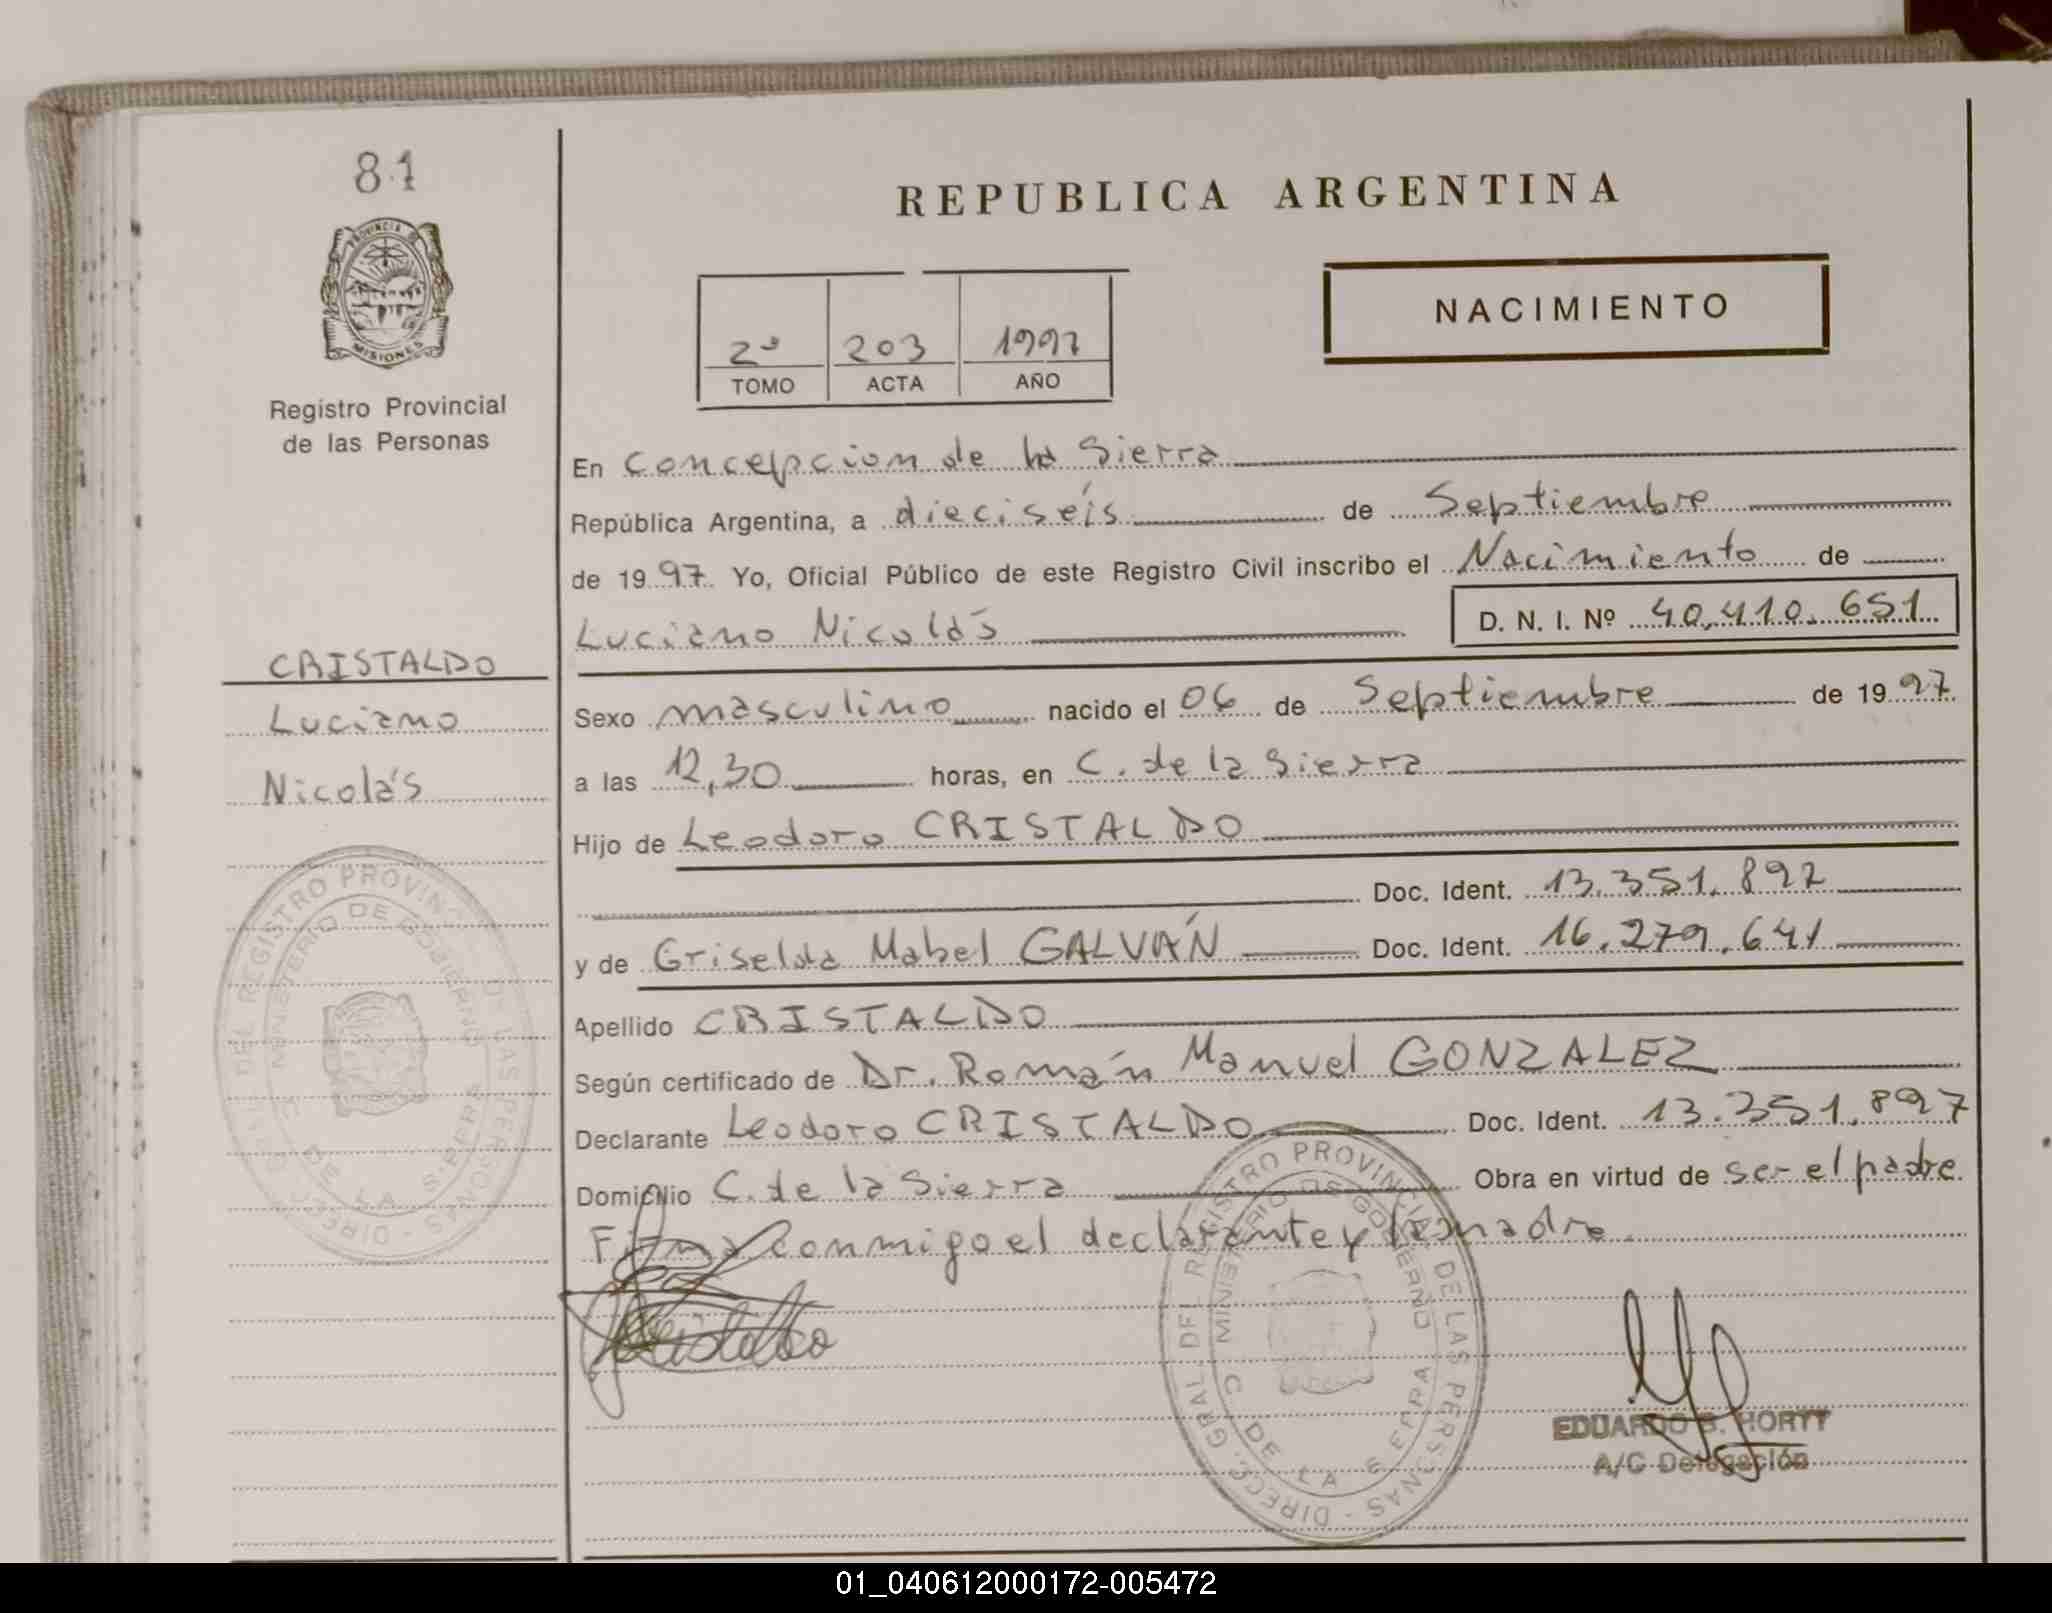 81
PROVINCIA DE
MISIONES
Registro Provincial
de las Personas
CRISTALDO
Luciano
Nicolás
DIRECC. GRAL. DEL REGISTRO PROVINCIAL DE LAS PERSONAS
MINISTERIO DE GOBIERNO
C. DE LA SIERRA
REPUBLICA ARGENTINA
NACIMIENTO
2º 203 1997
TOMO ACTA AÑO
En Concepcion de la Sierra
República Argentina, a dieciséis de Septiembre
de 1997. Yo, Oficial Público de este Registro Civil inscribo el Nacimiento de
Luciano Nicolás D. N. I. Nº 40.410.651
Sexo masculino nacido el 06 de Septiembre de 1997
a las 12,30 horas, en C. de la Sierra
Hijo de Leodoro CRISTALDO
Doc. Ident. 13.351.897
y de Griselda Mabel GALVÁN Doc. Ident. 16.279.641
Apellido CRISTALDO
Según certificado de Dr. Román Manuel GONZALEZ
Declarante Leodoro CRISTALDO Doc. Ident. 13.351.897
Domicilio C. de la Sierra Obra en virtud de ser el padre.
Firma conmigo el declarante y la madre.
DIRECC. GRAL. DEL REGISTRO PROVINCIAL DE LAS PERSONAS
MINISTERIO DE GOBIERNO
C. DE LA SIERRA
EDUARDO S. HORTT
A/C Delegación
01_040612000172-005472